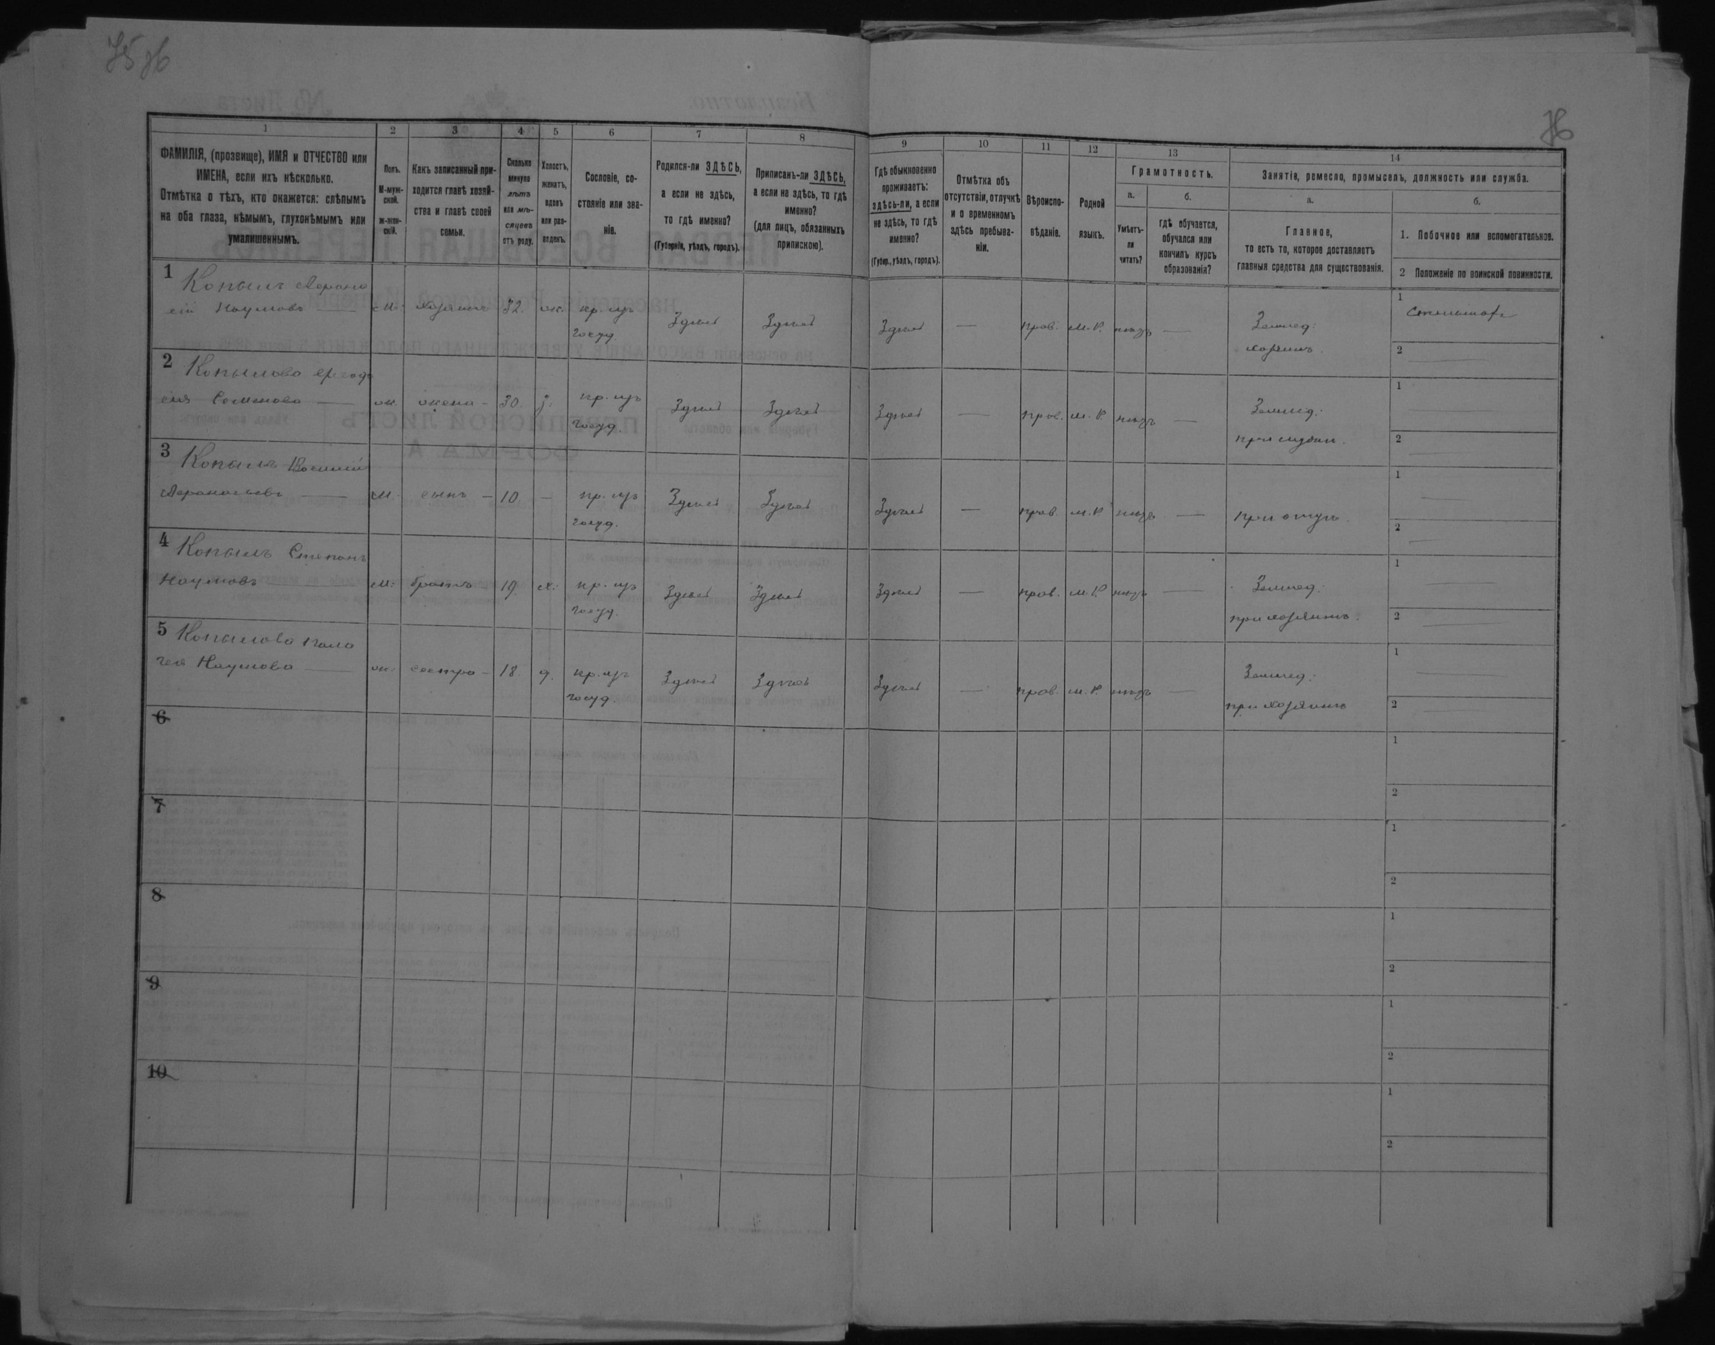 75 76
76
1
2
3
4
5
6
7
8
9
10
11
12
13
14
ФАМИЛІЯ, (прозвище), ИМЯ и ОТЧЕСТВО или
ИМЕНА, если ихъ нѣсколько.
Отмѣтка о тѣхъ, кто окажется: слѣпымъ
на оба глаза, нѣмымъ, глухонѣмымъ или
умалишеннымъ.
Полъ.
М-муж-
ской.
ж-жен-
скій.
Какъ записанный при-
ходится главѣ хозяй-
ства и главѣ своей
семьи.
Сколько
минуло
лѣтъ
или мѣ-
сяцевъ
отъ роду.
Холостъ,
женатъ,
вдовъ
или раз-
веденъ.
Сословіе, со-
стояніе или зва-
ніе.
Родился-ли ЗДѢСЬ,
а если не здѣсь,
то гдѣ именно?
(Губернія, уѣздъ, городъ).
Приписанъ-ли ЗДѢСЬ,
а если не здѣсь, то гдѣ
именно?
(для лицъ, обязанныхъ
припискою).
Гдѣ обыкновенно
проживаетъ:
здѣсь-ли, а если
не здѣсь, то гдѣ
именно?
(Губер., уѣздъ, городъ).
Отмѣтка объ
отсутствіи, отлучкѣ
и о временномъ
здѣсь пребыва-
ніи.
Вѣроиспо-
вѣданіе.
Родной
языкъ.
Грамотность.
а.
Умѣетъ-
ли
читать?
б.
гдѣ обучается,
обучался или
кончилъ курсъ
образованія?
Занятіе, ремесло, промыселъ, должность или служба.
а.
Главное,
то есть то, которое доставляетъ
главныя средства для существованія.
б.
1. Побочное или вспомогательное.
2 Положеніе по воинской повинности.
1 Копылъ
Наумовъ м. хозяинъ 32 ж. кр. изъ Здѣсь Здѣсь Здѣсь — прав. м. Р. — Землед: 1
госуд. хозяинъ 2
2 Копылова
Семенова ж. жена 30 з. кр. изъ Здѣсь Здѣсь Здѣсь — прав. м. Р. — Землед: 1
госуд. при мужѣ. 2
3 Копылъ Василій
м. сынъ 10 — кр. изъ Здѣсь Здѣсь Здѣсь — прав. м. Р. — при отцѣ. 1
госуд. 2
4 Копылъ Степанъ
Наумовъ м. братъ 19 х. кр. изъ Здѣсь Здѣсь Здѣсь — прав. м. Р. — Землед: 1
госуд. при хозяинѣ. 2
5 Копылова Пала
гея Наумова ж. сестра 18. д. кр. изъ Здѣсь Здѣсь Здѣсь — прав. м. Р. — Землед: 1
госуд. при хозяинѣ 2
6 1
2
7 1
2
8 1
2
9 1
2
10 1
2